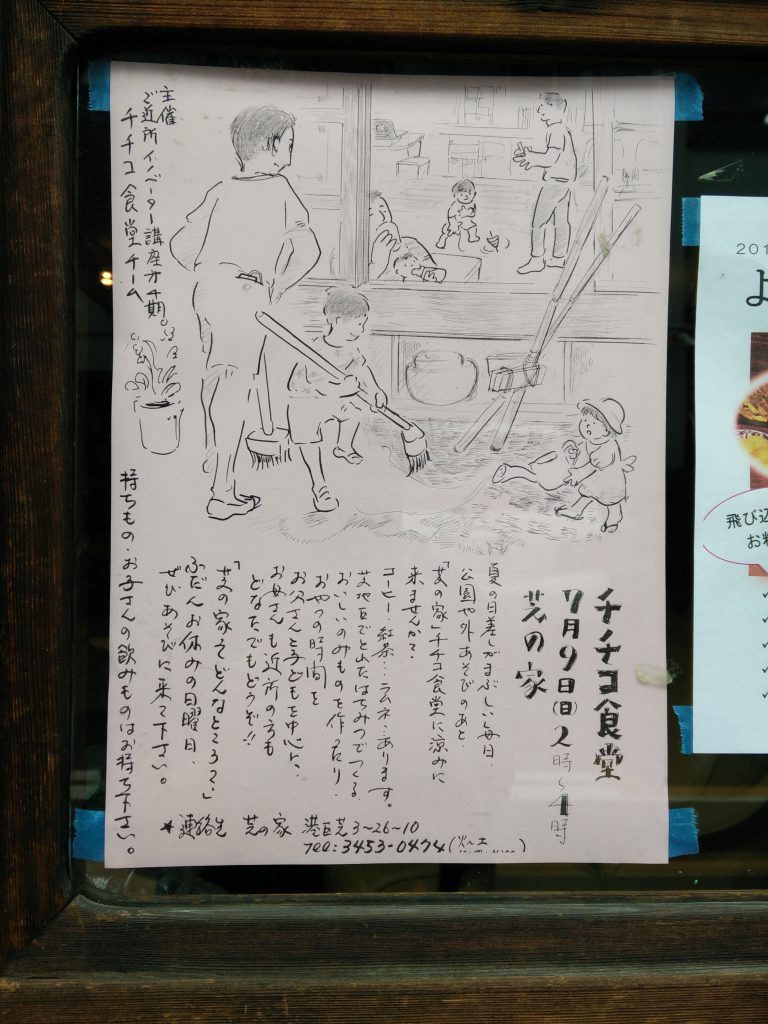 チチコ食堂
7月9日(日)2時〜4時
芝の家
夏の日差しがまぶしい毎日、
公園や外あそびのあと、
「芝の家」チチコ食堂に涼みに
来ませんか？
コーヒー・紅茶…ラムネ…あります。
芝地区でとれたはちみつでつくる
おいしいのみものを作ったり、
おやつの時間を
お父さんと子どもを中心に、
お母さんも近所の方も
どなたでもどうぞ!!
「芝の家ってどんなところ？」
ふだんお休みの日曜日、
ぜひあそびに来て下さい。
持ちもの・お子さんの飲みものはお持ち下さい。
★連絡先 芝の家 港区芝3-26-10
TEL:3453-0474(火〜土
主催
ご近所イノベーター講座 期
チチコ食堂チーム
201
よ
飛び込
お料